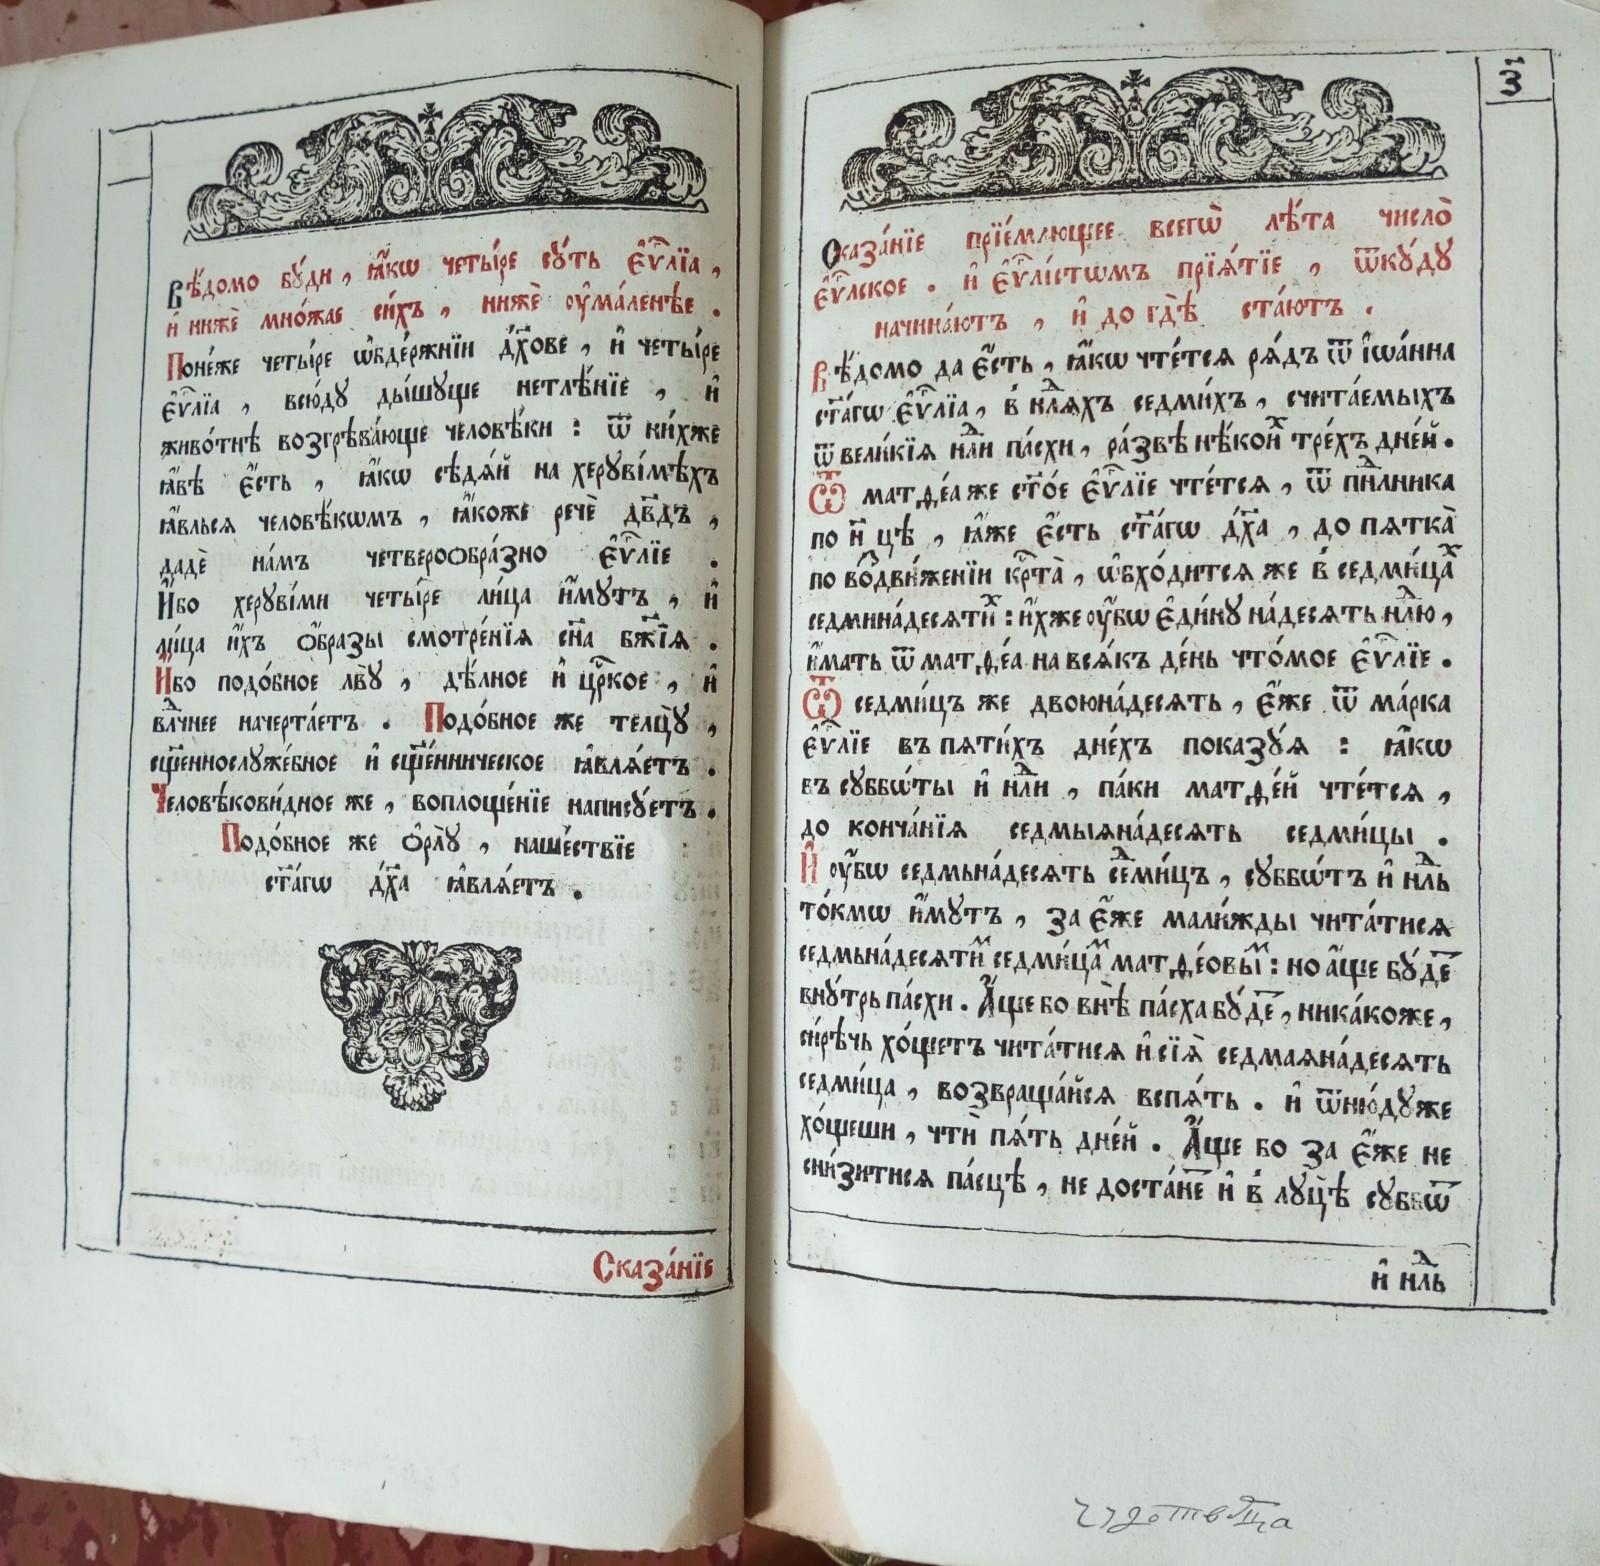 Вѣ́домо бꙋ́ди, ꙗ҆́кѡ четы́ре сꙋ́ть є҆ѵⷢ҇лїа,
и҆ нижѐ мно́жае си́хъ, нижѐ ᲂу҆ма́ленѣе.
Поне́же четы́ре ѡ҆бде́ржнїи дꙋ́хове, и҆ четы́ре
є҆ѵⷢ҇лїа, всю́дꙋ ды́шꙋще нетлѣ́нїе, и҆
живо́тнѣ возгрѣва́юще человѣ́ки: ѿ ни́хже
ꙗ҆́вѣ є҆́сть, ꙗ҆́кѡ сѣдѧ́й на херꙋві́мѣхъ
ꙗ҆́влься человѣ́кѡмъ, ꙗ҆́коже речѐ дв҃дъ,
дадѐ на́мъ четверообра́зно є҆ѵⷢ҇лїе.
И҆́бо херꙋві́ми четы́ре ли́ца и҆́мꙋтъ, и҆
ли́ца и҆́хъ ѻ҆́бразы смотре́нїѧ сн҃а бж҃їѧ.
И҆́бо подо́бное львꙋ̀, дѣ́лное и҆ црⷭ҇кое, и҆
влⷣчнее начерта́етъ. Подо́бное же телцꙋ̀,
сщ҃еннослꙋже́бное и҆ сщ҃е́нническое ꙗ҆влѧ́етъ.
Человѣкови́дное же, воплоще́нїе написꙋ́етъ.
Подо́бное же ѻ҆рлꙋ̀, наше́ствїе
ст҃а́гѡ дх҃а ꙗ҆влѧ́етъ.
Сказа́нїе
з҃
Сказа́нїе прїе́млющее всегѡ̀ лѣ́та число̀
є҆ѵⷢ҇лское. и҆ є҆ѵⷢ҇лі́стѡмъ прїѧ́тїе, ѿкꙋ́дꙋ
начина́ютъ, и҆ до гдѣ̀ ста́ютъ.
Вѣ́домо да є҆́сть, ꙗ҆́кѡ чте́тсѧ рѧ́дъ ѿ і҆ѡа́нна
ст҃а́гѡ є҆ѵⷢ҇лїа, в̾ нⷣлѧхъ седми́хъ, счита́емыхъ
ѿ вели́кїѧ нⷣли па́схи, ра́звѣ нѣ́коиⷯ тре́хъ дне́й.
Ѿ матѳе́а же ст҃о́е є҆ѵⷢ҇лїе чте́тсѧ, ѿ пнⷣлника
по н҃ цѣ, ꙗ҆́же є҆́сть ст҃а́гѡ дх҃а, до пѧтка̀
по воⷥдви́женїи крⷭ҇та̀, ѡ҆бхо́дитсѧ же в̾ седми́цаⷯ
седмина́десѧтиⷯ: и҆́хже ᲂу҆́бѡ є҆ди́нꙋ на́десѧть нⷣлю,
и҆́мать ѿ матѳе́а на всѧ́къ де́нь что́мое є҆ѵⷢ҇лїе.
Ѿ седми́цъ же двоюна́десѧть, є҆́же ѿ ма́рка
є҆ѵⷢ҇лїе въ пѧти́хъ дне́хъ показꙋ́ѧ: ꙗ҆́кѡ
въ сꙋббѡ́ты и҆ нⷣли, па́ки матѳе́й чте́тсѧ,
до конча́нїѧ седмыѧна́десѧть седми́цы.
И҆ ᲂу҆́бѡ седмьна́десѧть сеⷣми́цъ, сꙋббѡ́тъ и҆ нⷣль
то́кмѡ и҆́мꙋтъ, за є҆́же мали́жды чита́тисѧ
седмьна́десѧтиⷨ седми́цаⷨ матѳе́овыⷨ: но а҆́ще бꙋ́деⷮ
внꙋ́трь па́схи. А҆́ще бо внѣ̀ па́сха бꙋ́деⷮ, ника́коже,
си́рѣчь хо́щетъ чита́тисѧ и҆ сїѧ̀ седмаѧна́десѧть
седми́ца, возвраща́йсѧ вспѧ́ть. и҆ ѿню́дꙋже
хо́щеши, чтѝ пѧ́ть дне́й. А҆́ще бо за є҆́же не
сни́зитисѧ па́сцѣ, не доста́неⷮ и҆ в̾ лꙋцѣ̀ сꙋббѿ
и҆ нⷣль